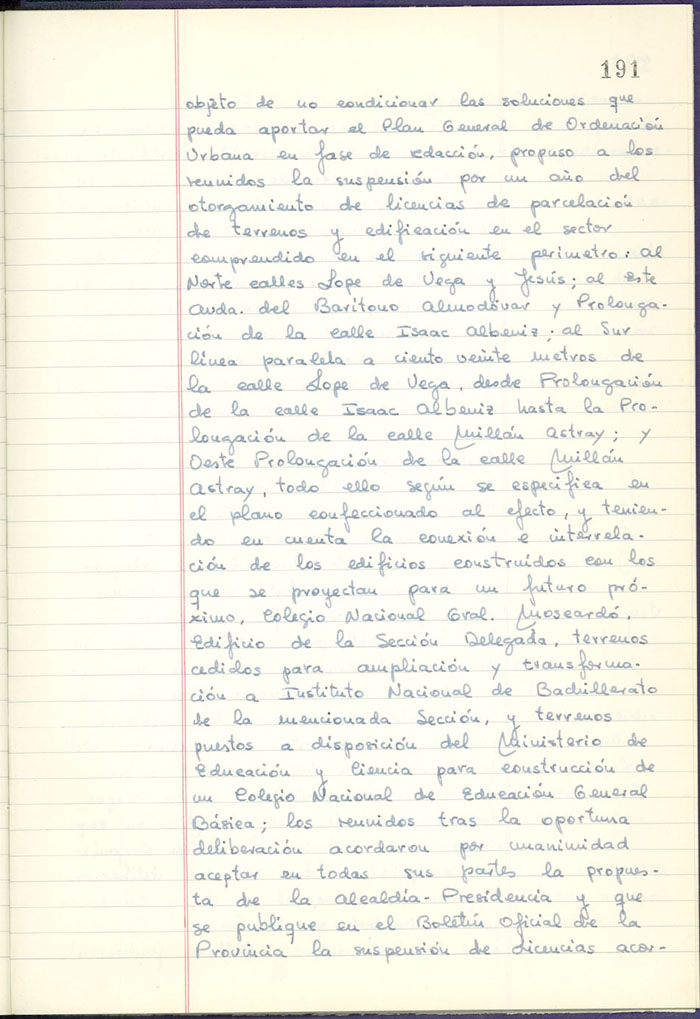 191
objeto de no condicionar las soluciones que
pueda aportar el Plan General de Ordenación
Urbana en fase de redacción, propuso a los
reunidos la suspensión por un año del
otorgamiento de licencias de parcelación
de terrenos y edificación en el sector
comprendido en el siguiente perímetro: al
Norte calles Lope de Vega y Jesús; al este
avda. del Barítono Almodóvar y Prolonga-
ción de la calle Isaac Albeniz; al Sur
línea paralela a ciento veinte metros de
la calle Lope de Vega, desde Prolongación
de la calle Isaac Albeniz hasta la Pro-
longación de la calle Millán Astray; y
Oeste Prolongación de la calle Millán
Astray, todo ello según se especifica en
el plano confeccionado al efecto, y tenien-
do en cuenta la conexión e interrela-
ción de los edificios construídos con los
que se proyectan para un futuro pró-
ximo, Colegio Nacional Gral. Moscardó,
Edificio de la Sección Delegada, terrenos
cedidos para ampliación y transforma-
ción a Instituto Nacional de Bachillerato
de la mencionada Sección, y terrenos
puestos a disposición del Ministerio de
Educación y Ciencia para construcción de
un Colegio Nacional de Educación General
Básica; los reunidos tras la oportuna
deliberación acordaron por unanimidad
aceptar en todas sus partes la propues-
ta de la Alcaldía-Presidencia y que
se publique en el Boletín Oficial de la
Provincia la suspensión de Licencias acor-